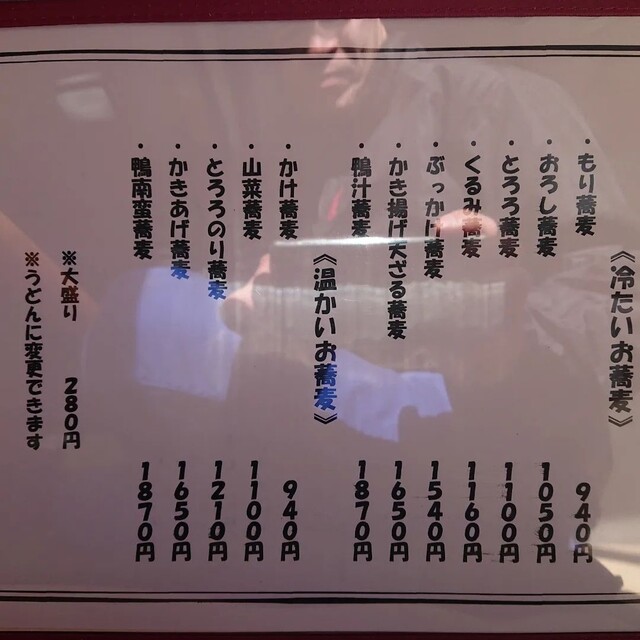 《冷たいお蕎麦》
・もり蕎麦 940円
・おろし蕎麦 1050円
・とろろ蕎麦 1100円
・くるみ蕎麦 1160円
・ぶっかけ蕎麦 1540円
・かき揚げ天ざる蕎麦 1650円
・鴨汁蕎麦 1870円
《温かいお蕎麦》
・かけ蕎麦 940円
・山菜蕎麦 1100円
・とろろのり蕎麦 1210円
・かきあげ蕎麦 1650円
・鴨南蛮蕎麦 1870円
※大盛り 280円
※うどんに変更できます